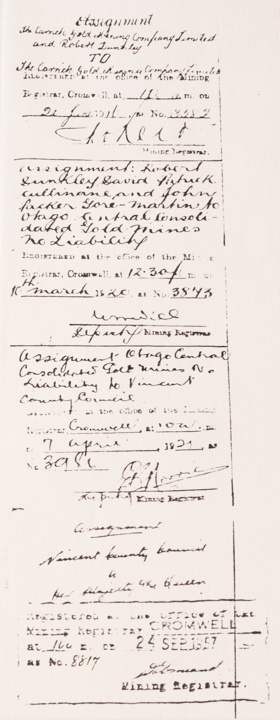 Assignment
The Carrick Gold Mining Company Limited
and Robert Dunkley
TO
The Carrick Gold Mining Company Limited
REGISTERED at the office of the Mining
Registrar, Cromwell, at 11 a.m. on
21 as No.
Mining Registrar.
Assignment: Robert
Dunkley David Patrick
Cullinane and John
Parker Gore-Martin to
Otago Central Consoli-
dated Gold Mines
No Liability
REGISTERED at the office of the Mining
Registrar, Cromwell, at 12.30 p.m. on
16th March 1920 as No. 3843
Deputy Mining Registrar
Assignment Otago Central
Consolidated Gold Mines No
Liability to Vincent
County Council
at the office of the Mining
Registrar Cromwell, at 10 a.m.
on 7 April, 1921 as
No
Deputy Mining Registrar
Assignment
Vincent County Council
to
Her Majesty the Queen
Registered at the office of the
Mining Registrar CROMWELL
at m. on 24 SEP 1957
as No. 8817
Mining Registrar.